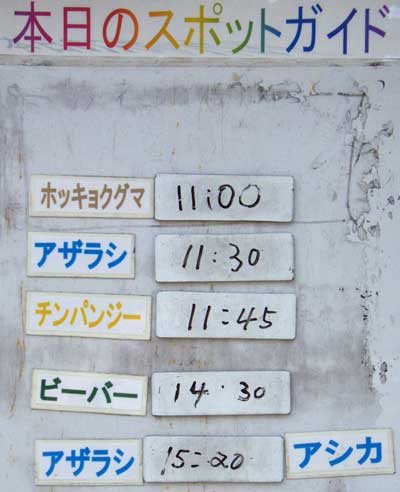 本日のスポットガイド
ホッキョクグマ 11:00
アザラシ 11:30
チンパンジー 11:45
ビーバー 14:30
アザラシ 15:20 アシカ